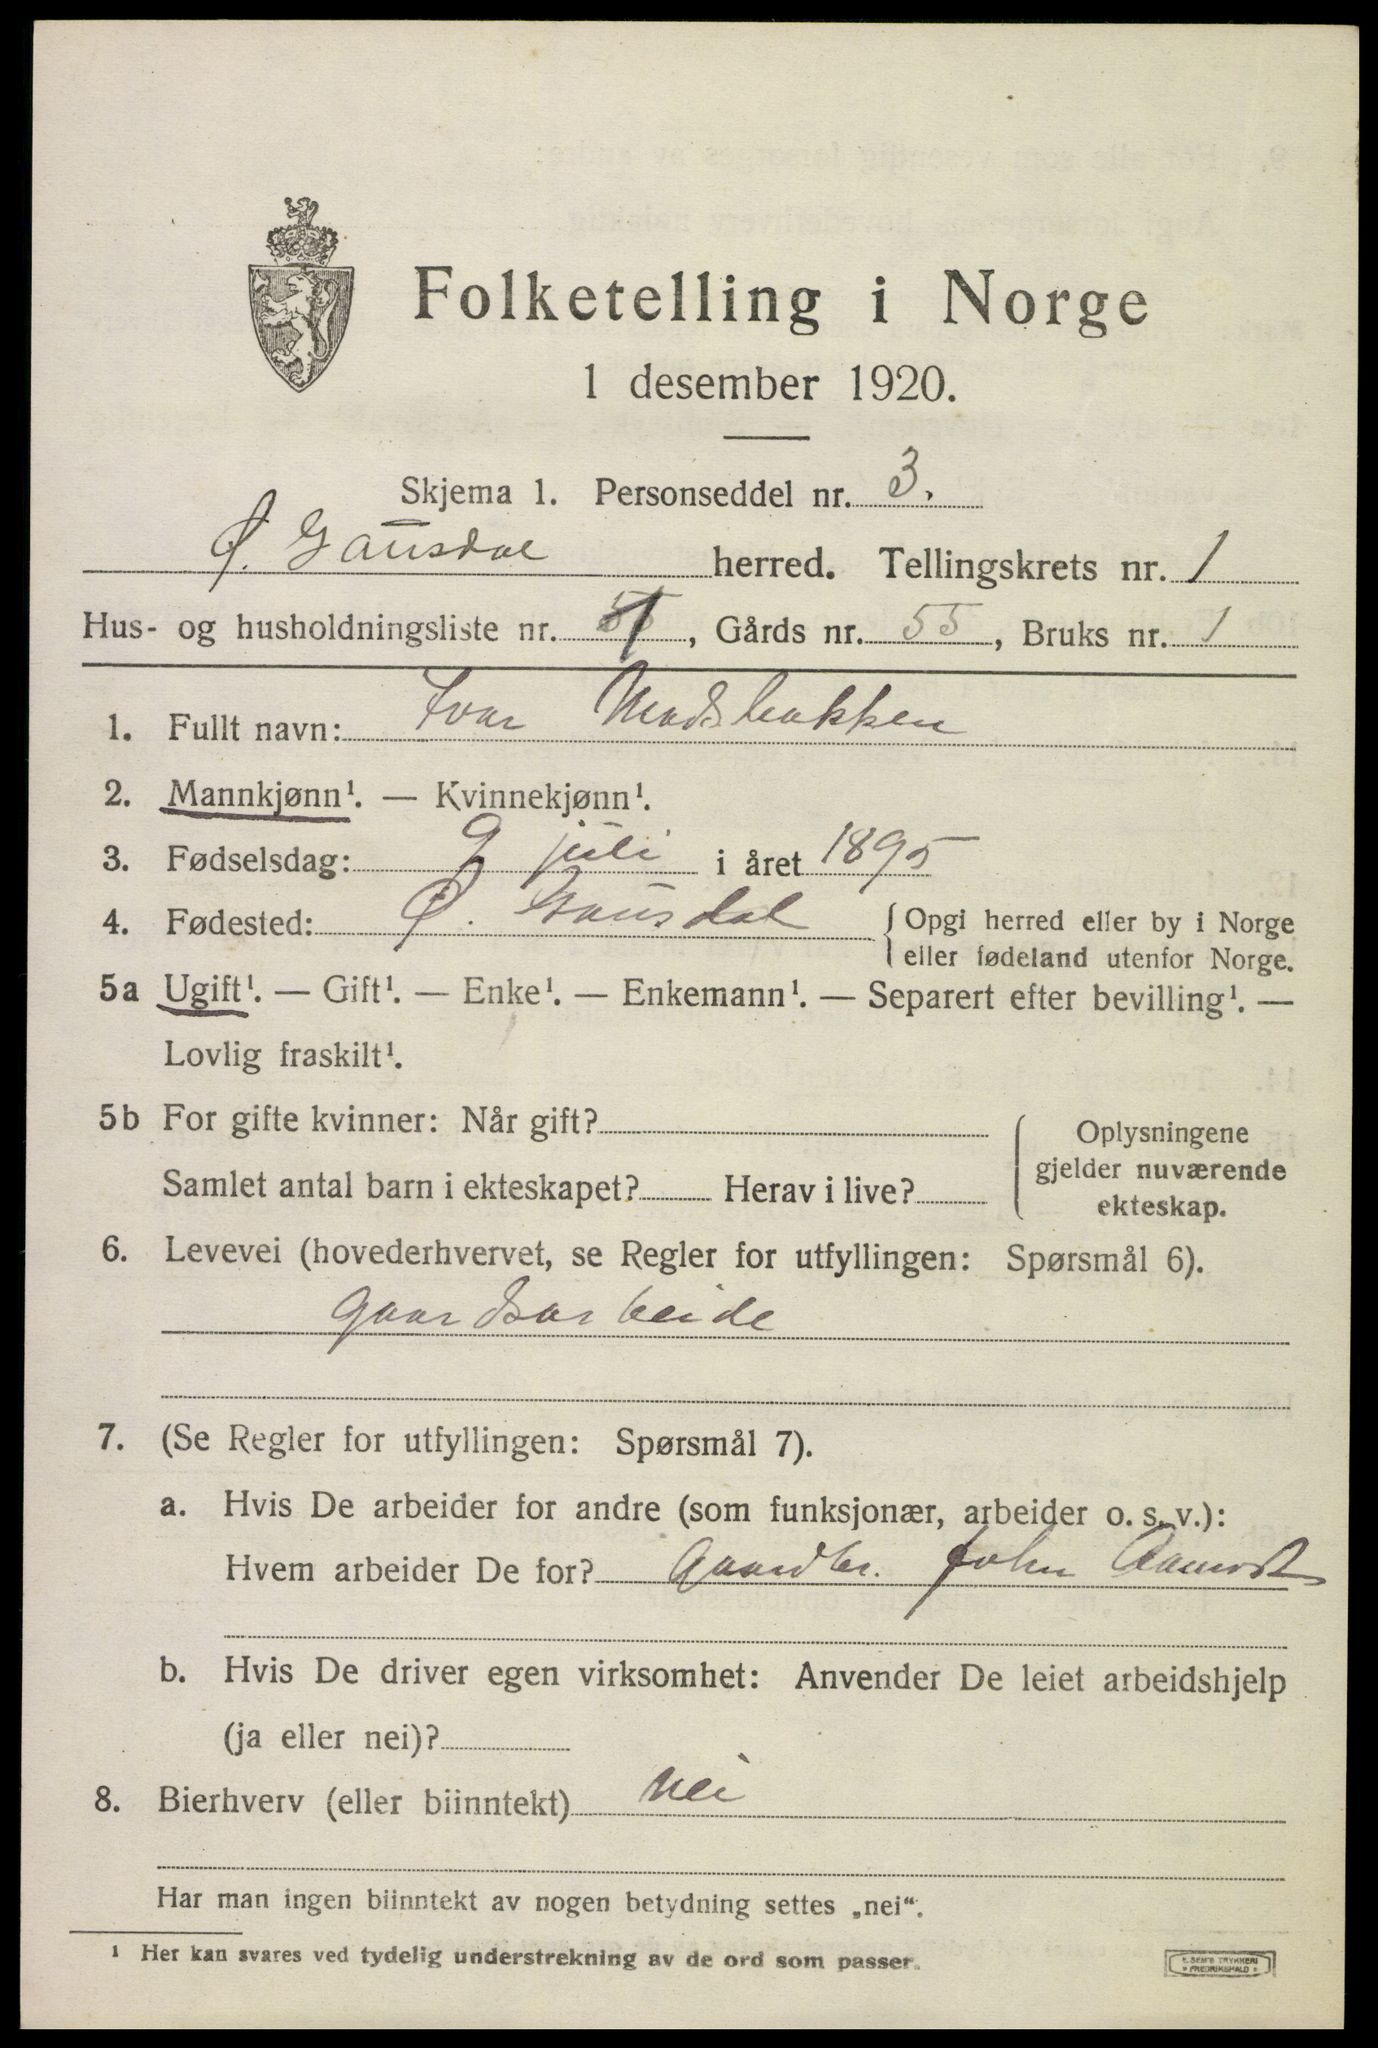 Folketelling i Norge
1 desember 1920.
Skjema 1. Personseddel nr. 3.
Ø. Gausdal herred. Tellingskrets nr. 1
Hus- og husholdningsliste nr. 1, Gårds nr. 55, Bruks nr. 1
1. Fullt navn: Ivar Madsbakken
2. Mannkjønn¹. — Kvinnekjønn¹.
3. Fødselsdag: 9 juli i året 1895
4. Fødested: Ø. Gausdal { Opgi herred eller by i Norge
eller fødeland utenfor Norge.
5a Ugift¹. — Gift¹. — Enke¹. — Enkemann¹. — Separert efter bevilling¹. —
Lovlig fraskilt¹.
5b For gifte kvinner: Når gift? Oplysningene
Samlet antal barn i ekteskapet? Herav i live? gjelder nuværende
ekteskap.
6. Levevei (hovederhvervet, se Regler for utfyllingen: Spørsmål 6).
gaardsarbeide
7. (Se Regler for utfyllingen: Spørsmål 7).
a. Hvis De arbeider for andre (som funksjonær, arbeider o. s. v.):
Hvem arbeider De for? Gaardbr. John
b. Hvis De driver egen virksomhet: Anvender De leiet arbeidshjelp
(ja eller nei)?
8. Bierhverv (eller biinntekt) nei
Har man ingen biinntekt av nogen betydning settes „nei“.
¹ Her kan svares ved tydelig understrekning av de ord som passer.
E. SEM'S TRYKKERI
FREDRIKSHALD